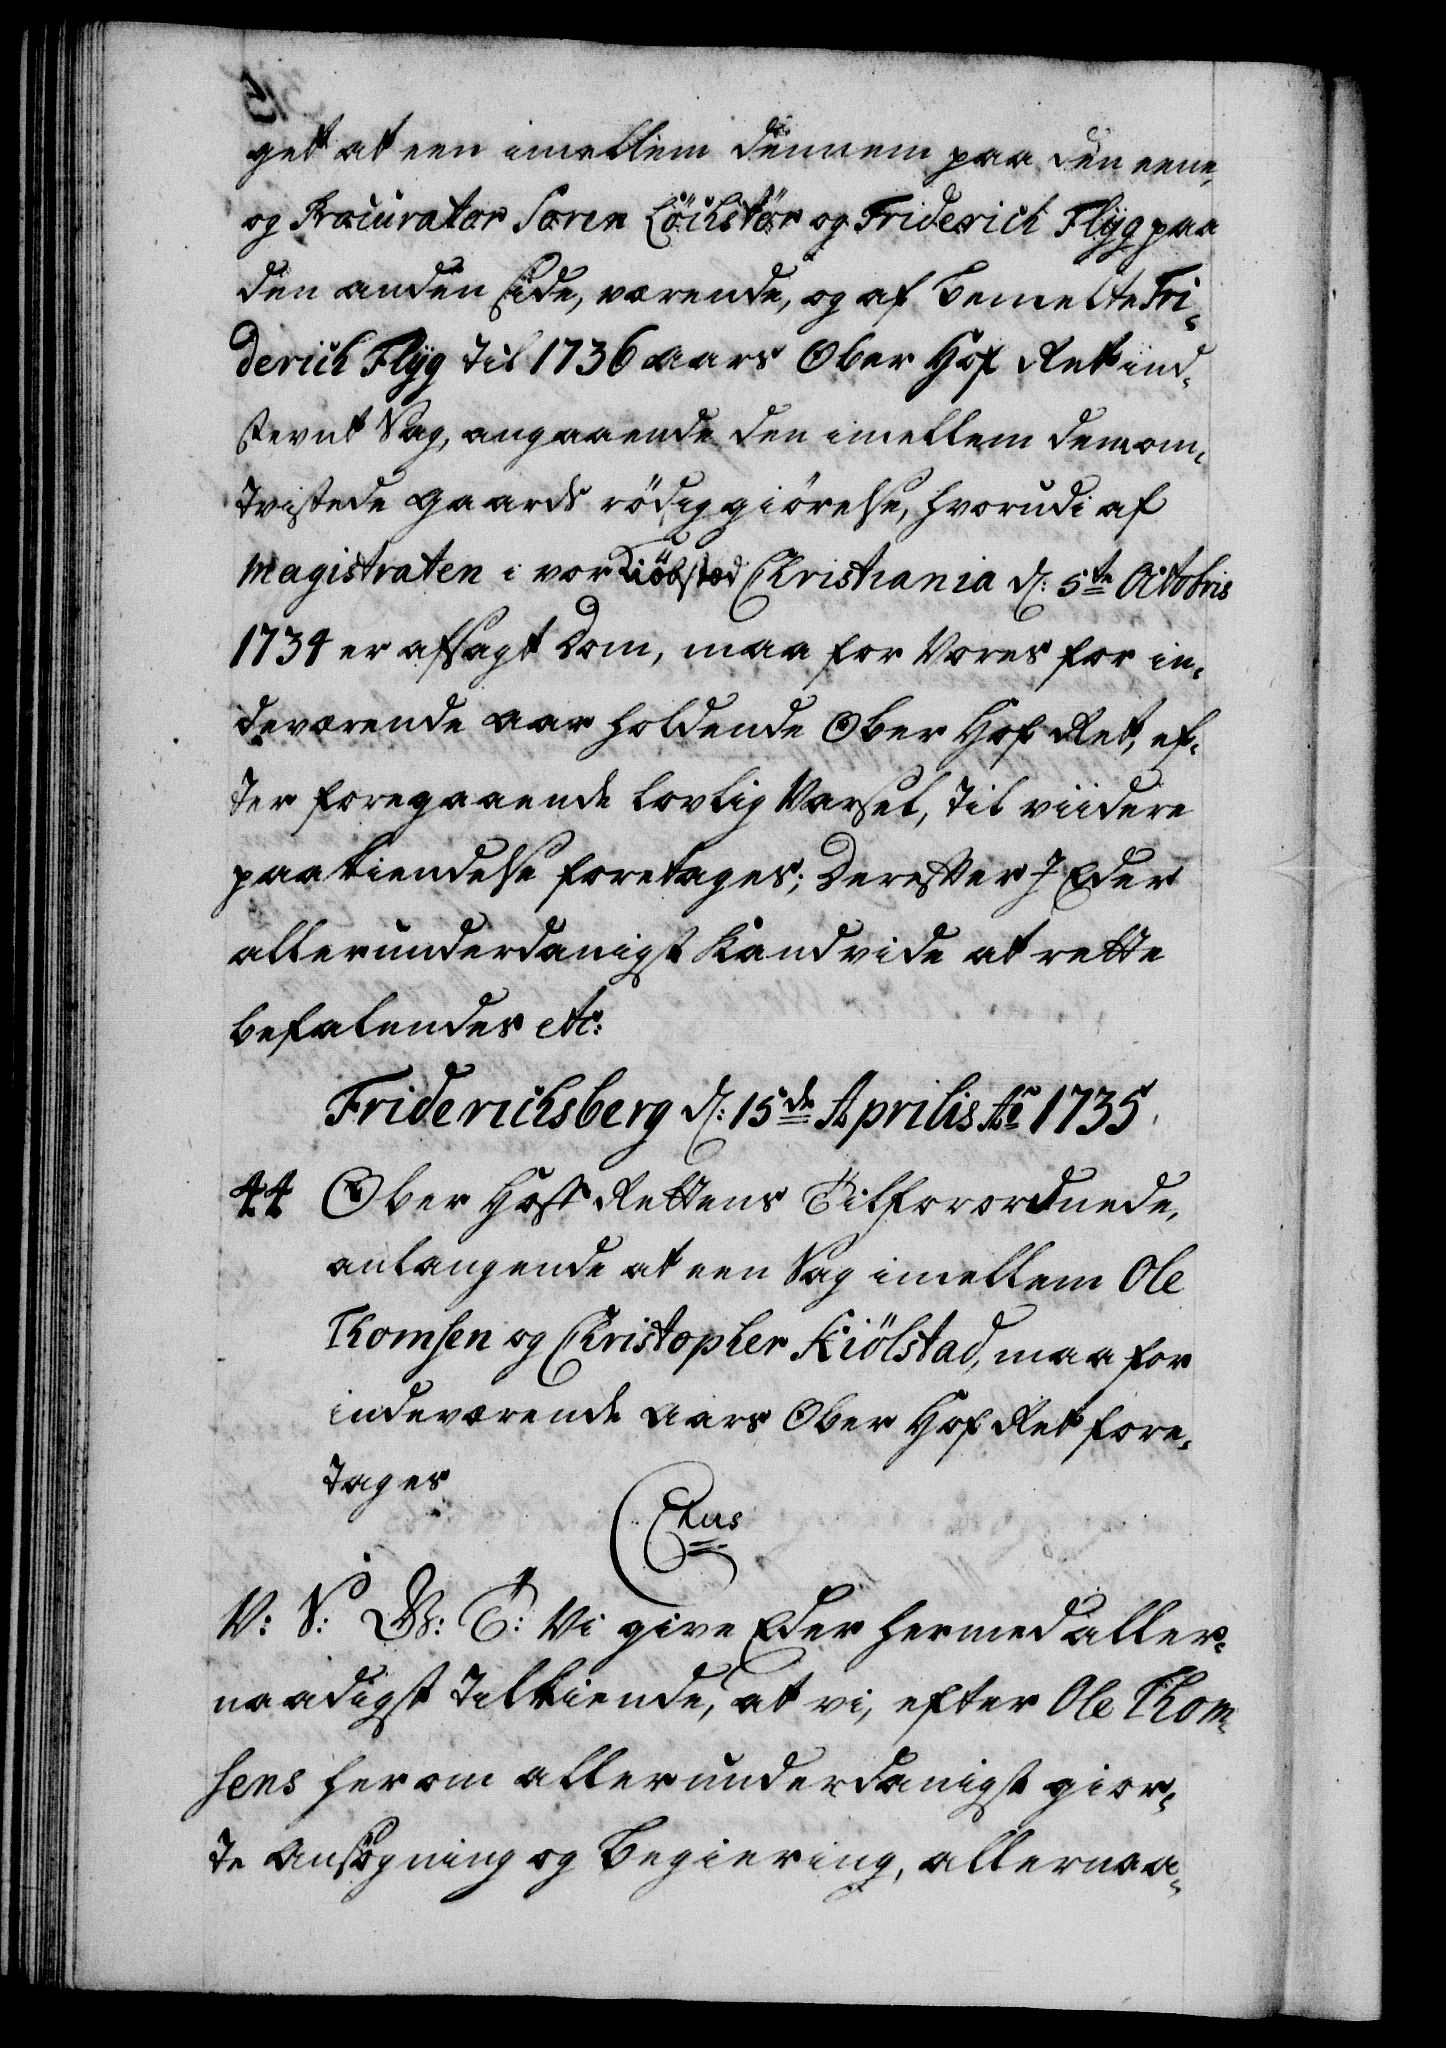 get at een imellem dennem paa den eene,
og Procurator Søren Löchstör og Friderich Flÿg paa
den anden Side, værende, og af bemelte Fri-
derich Flÿg til 1736 aars Ober Hof Ret ind-
stevnt Sag, angaaende den imellem dem om-
tvistede Gaards rödiggiörelse, hvorudi af
Magistraten i vor Kiöbsted Christiania d: 5te Octobris
1734 er afsagt Dom, maa for Vores for in-
deværende aar holdende Ober Hof Ret, ef-
ter foregaaende lovlig Varsel, til viidere
paakiendelse foretages; Derefter I Eder
allerunderdanigst kand vide at rette
befalendes etc:
Friderichsberg d: 15de Aprilis Ao 1735
44 Ober Hoff Rettens Tilforordnede,
anlangende at een Sag imellem Ole
Thomsen og Christopher Kiölstad, maa for
indeværende aars Ober Hof Ret fore-
tages
Ctus
V: S: G: T: Vi give Eder hermed aller-
naadigst tilkiende, at vi, efter Ole Thom-
sens herom allerunderdanigst gior-
te Ansögning og Begiering, allernaa-